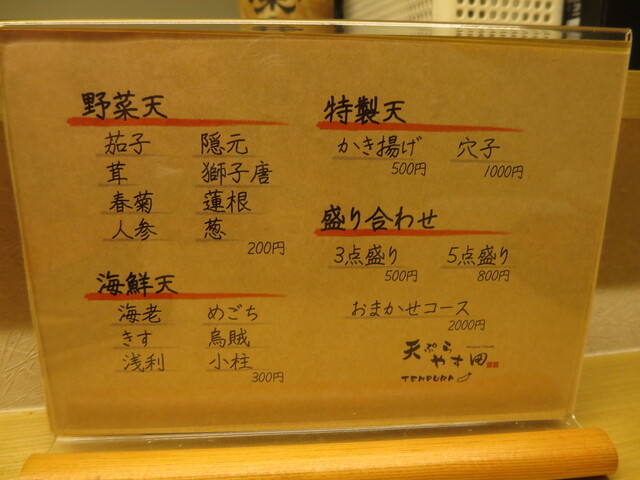 野菜天
茄子 隠元
茸 獅子唐
春菊 蓮根
人参 葱
200円
海鮮天
海老 めごち
きす 烏賊
浅利 小柱
300円
特製天
かき揚げ 穴子
500円 1000円
盛り合わせ
3点盛り 5点盛り
500円 800円
おまかせコース
2000円
天ぷら
やす田
TENPURA